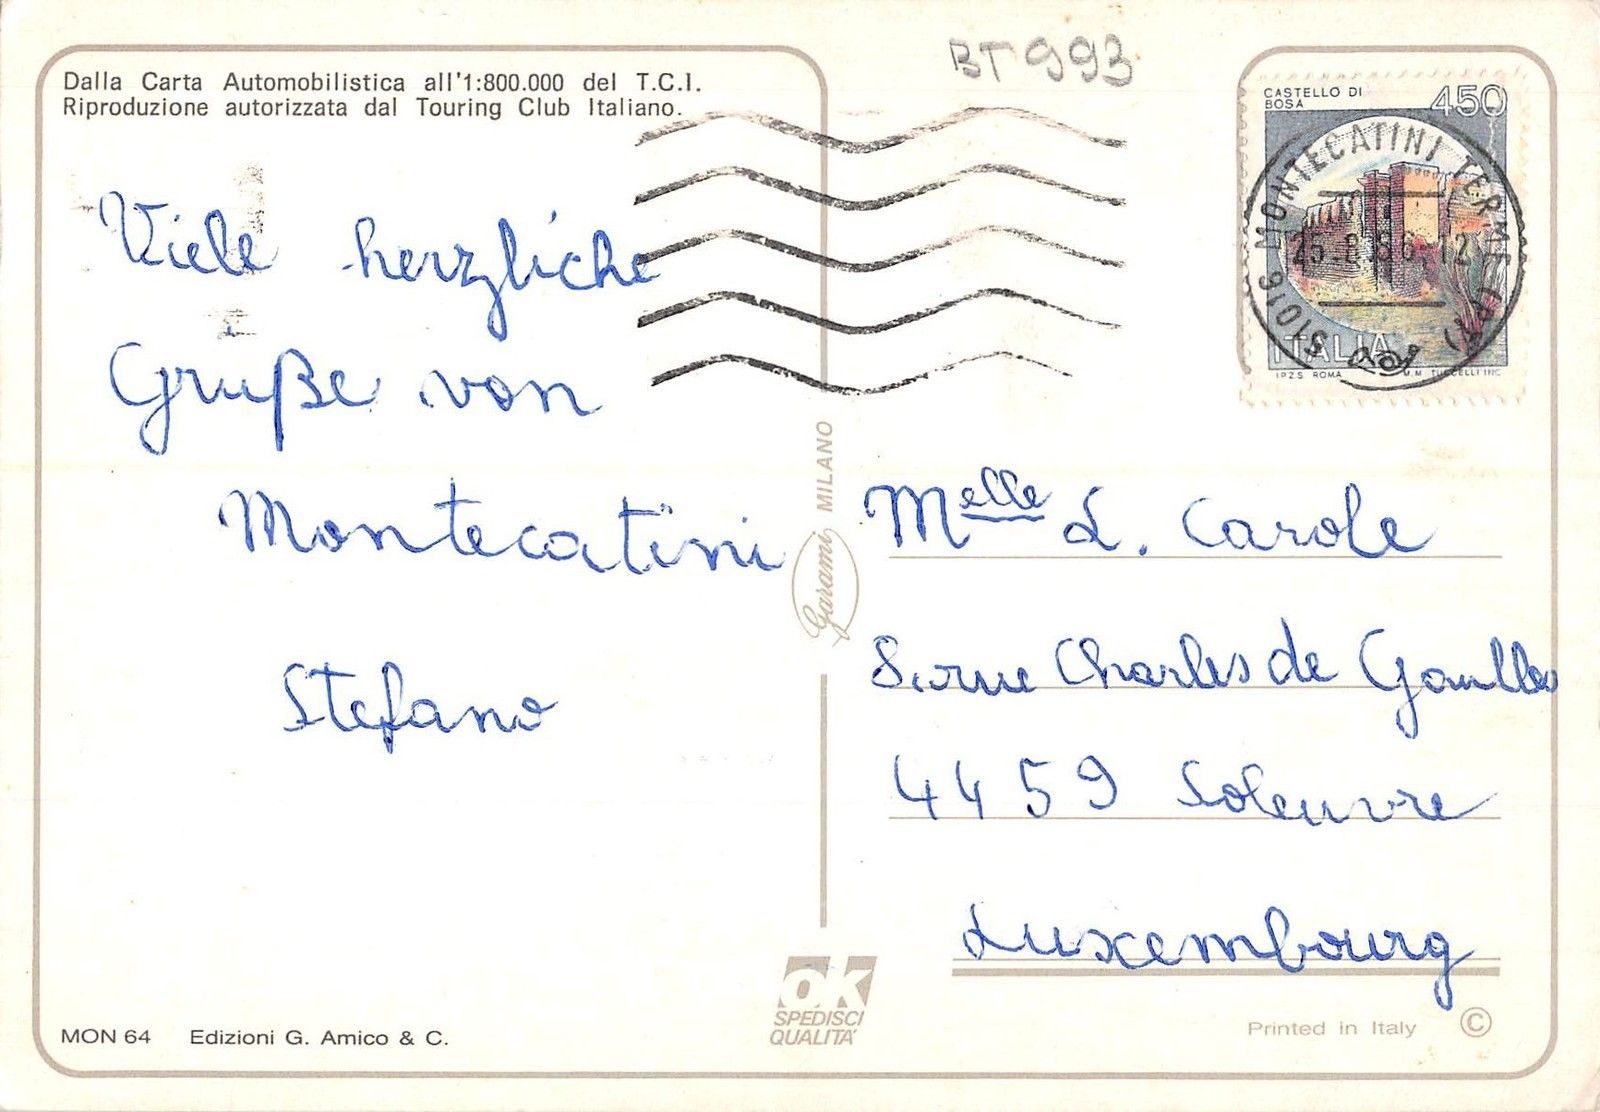 Dalla Carta Automobilistica all'1:800.000 del T.C.I.
Riproduzione autorizzata dal Touring Club Italiano.
BT 993
CASTELLO DI
BOSA
450
ITALIA
I.P.Z.S. ROMA M.M. TUCCELLI INC.
51016 MONTECATINI TERME (PT)
25.8.86-12
Viele herzliche
Gruße von
Montecatini
Stefano
Garami MILANO
Melle L. Carole
rue Charles de Gaulles
4459 Soleuvre
Luxembourg
OK
SPEDISCI
QUALITÀ
MON 64 Edizioni G. Amico & C.
Printed in Italy ©